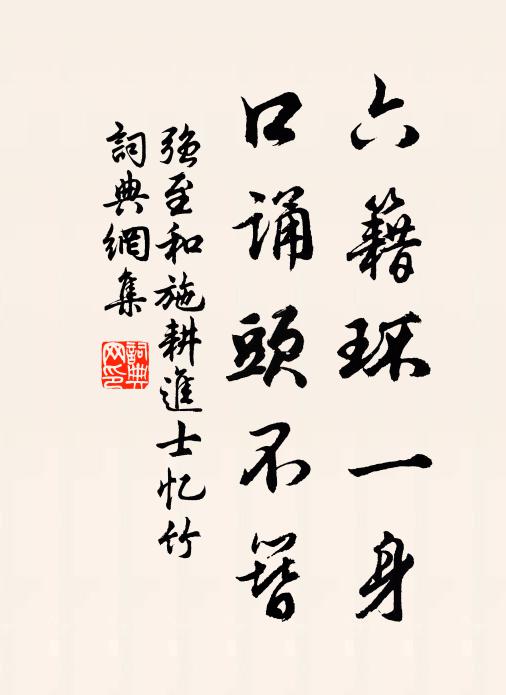 六籍环一身
口诵頭不簪
强至和施耕進士忆竹
詞典網集
詞典
网印